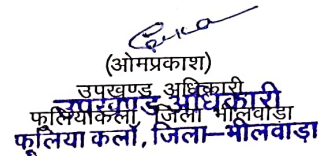 (ओमप्रकाश)
उपखण्ड अधिकारी
फूलियाकलां, जिला भीलवाडा
उपखण्ड अधिकारी
फूलिया कलाँ, जिला–भीलवाड़ा